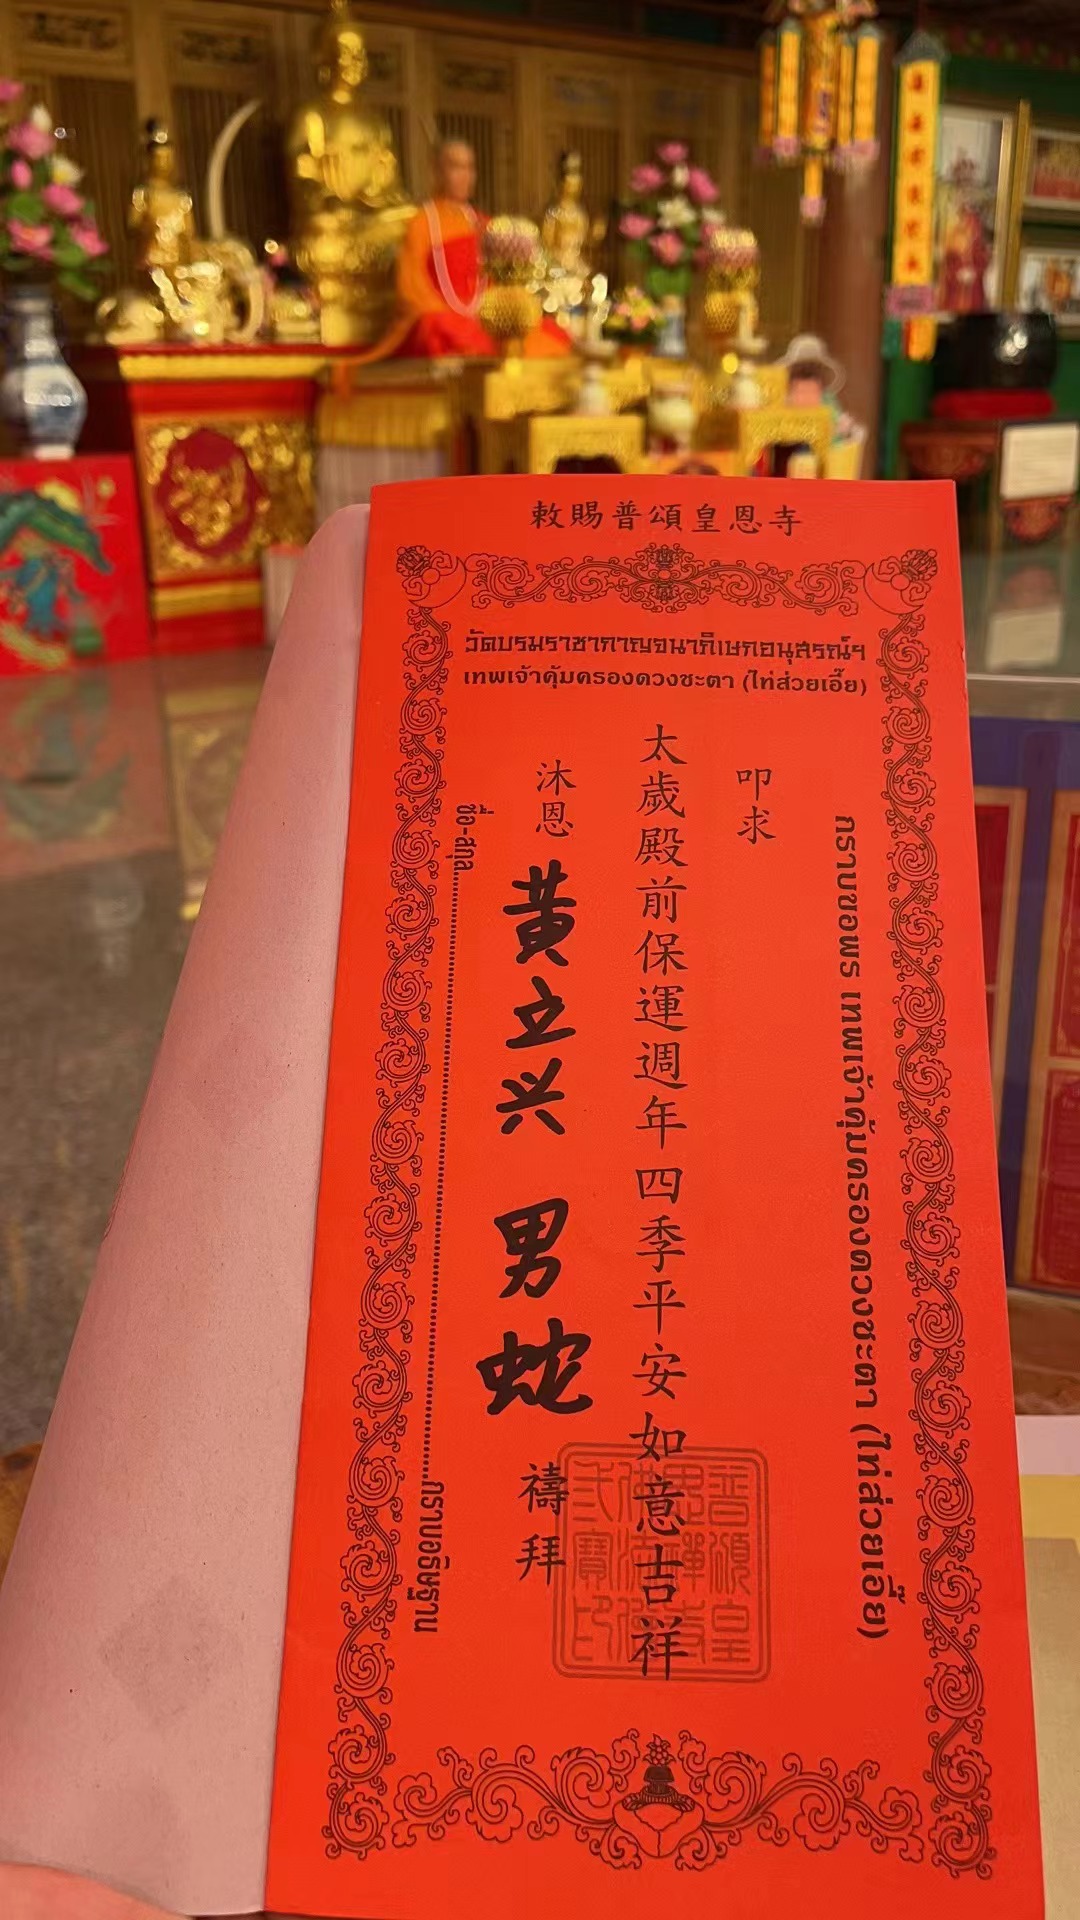 敕賜普頌皇恩寺
วัดบรมราชากาญจนาภิเษกอนุสรณ์ฯ
เทพเจ้าคุ้มครองดวงชะตา (ไท่ส่วยเอี๊ย)
กราบขอพร เทพเจ้าคุ้มครองดวงชะตา (ไท่ส่วยเอี๊ย)
叩求
太歲殿前保運週年四季平安如意吉祥
沐恩 黄立兴 男 蛇 禱拜
ชื่อ-สกุล........กราบอธิษฐาน